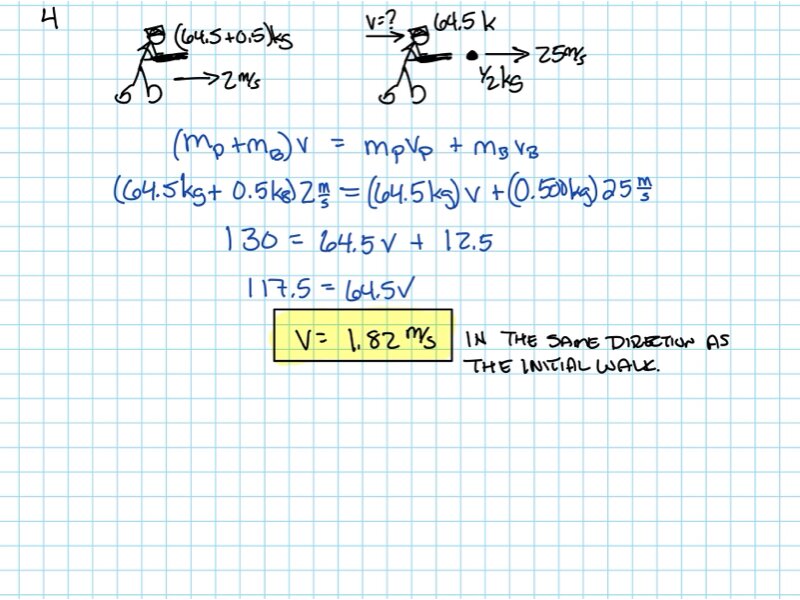 4
(64.5+0.5)kg
2 m/s
v=?
64.5 k
25 m/s
1/2 kg
(mp + mB)v = mpvp + mBvB
(64.5kg + 0.5kg)2 m/s = (64.5kg)v + (0.500kg)25 m/s
130 = 64.5v + 12.5
117.5 = 64.5v
v = 1.82 m/s
IN THE SAME DIRECTION AS
THE INITIAL WALK.